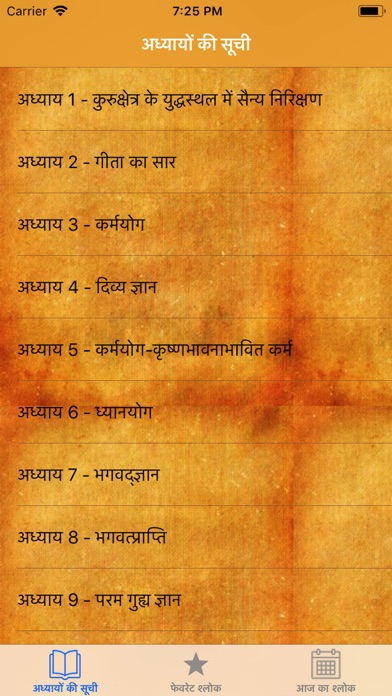 Carrier 7:25 PM
अध्यायों की सूची
अध्याय 1 - कुरुक्षेत्र के युद्धस्थल में सैन्य निरिक्षण
अध्याय 2 - गीता का सार
अध्याय 3 - कर्मयोग
अध्याय 4 - दिव्य ज्ञान
अध्याय 5 - कर्मयोग-कृष्णभावनाभावित कर्म
अध्याय 6 - ध्यानयोग
अध्याय 7 - भगवद्ज्ञान
अध्याय 8 - भगवत्प्राप्ति
अध्याय 9 - परम गुह्य ज्ञान
अध्यायों की सूची फेवरेट श्लोक आज का श्लोक